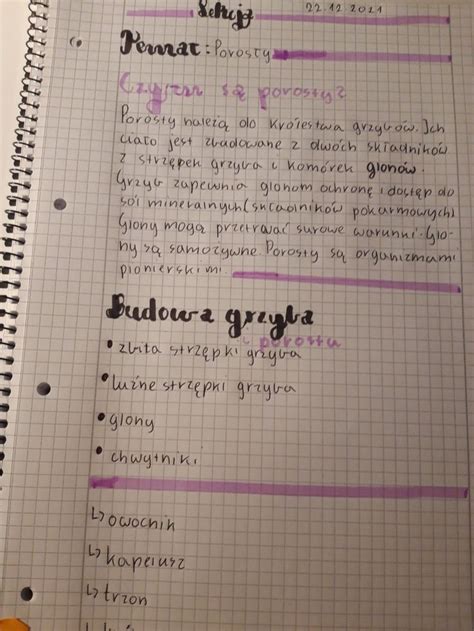 Lekcja 22.12.2021
Temat: Porosty
Czym są porosty?
Porosty należą do królestwa grzybów. Ich
ciało jest zbudowane z dwóch składników
z strzępek grzyba i komórek glonów.
Grzyb zapewnia glonom ochronę i dostęp do
soli mineralnych (składników pokarmowych)
Glony mogą przetrwać surowe warunki. Glo-
ny są samożywne. Porosty są organizmami
pionierskimi.
Budowa grzyba
i porostu
• zbita strzępki grzyba
• luźne strzępki grzyba
• glony
• chwytniki
↳ owocnik
↳ kapelusz
↳ trzon